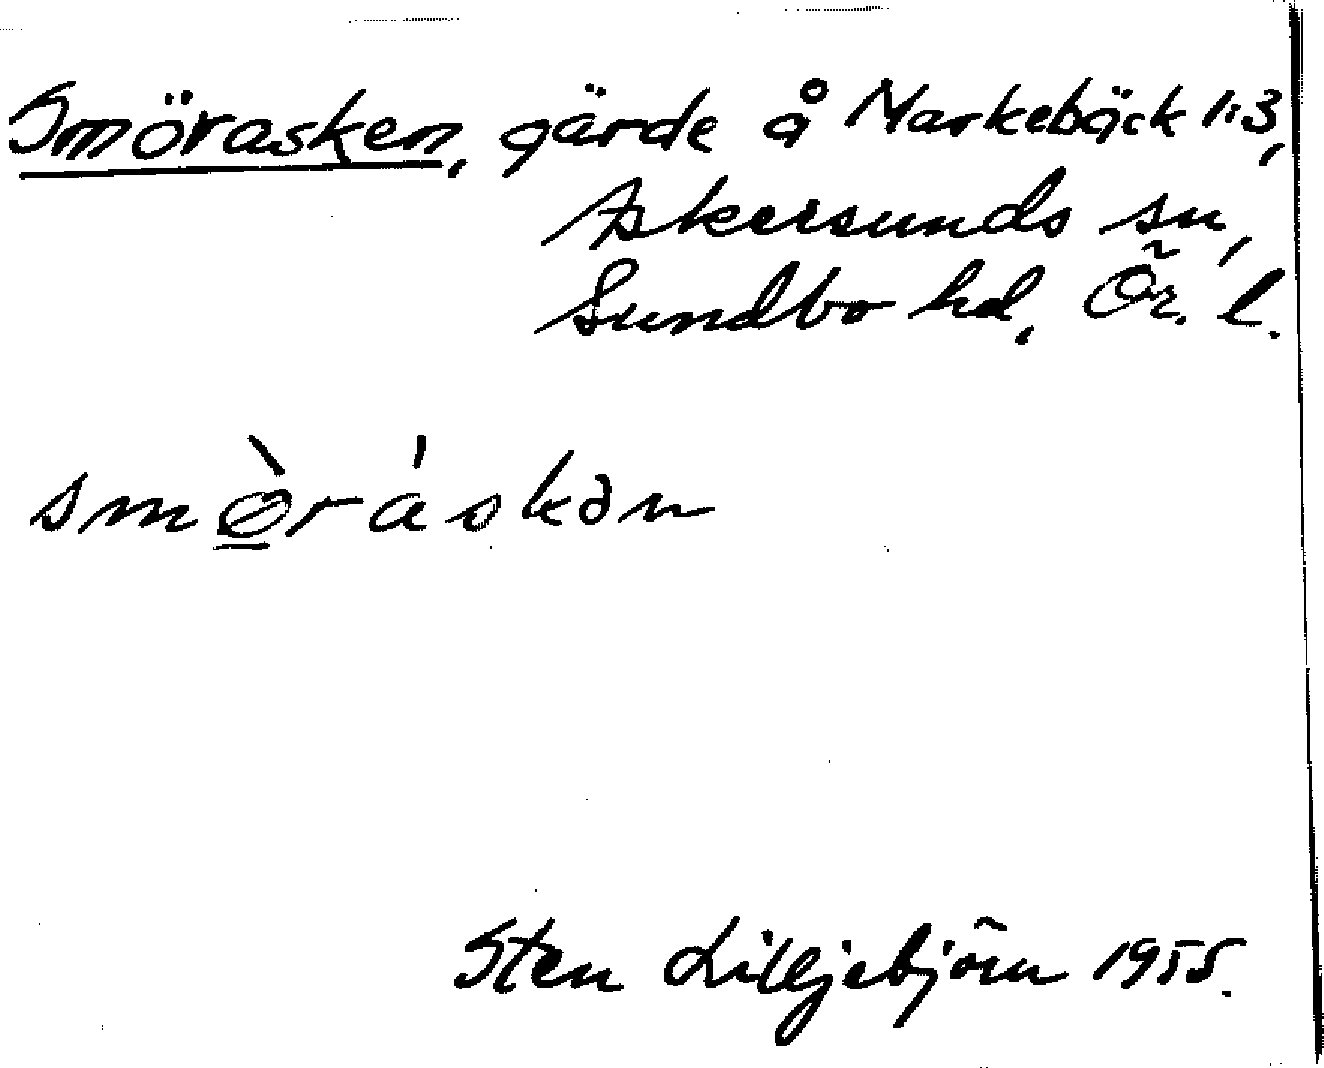 Smörasken, gärde å Markebäck 1:3,
Askersunds sn,
Sundbo hd, Ör. l.
smø̲̀ráskən
Sten Lilljebjörn 1955.